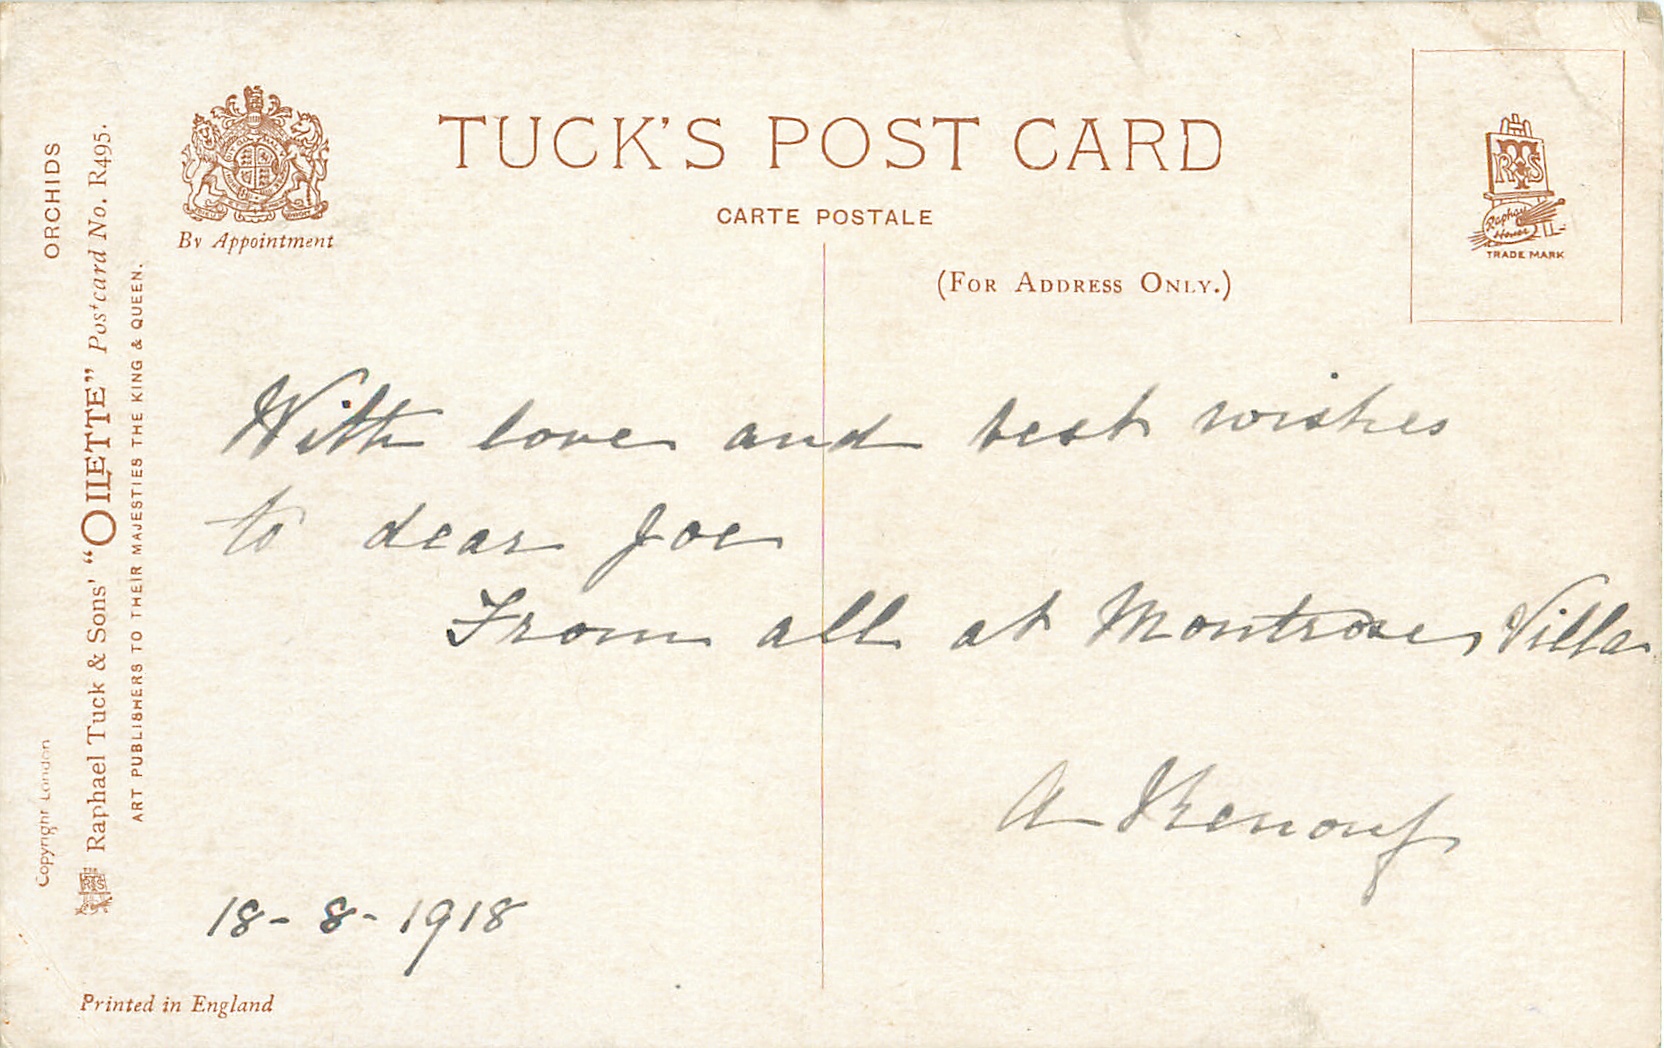 TUCK'S POST CARD
CARTE POSTALE
(FOR ADDRESS ONLY.)
By Appointment
TRADE MARK
ORCHIDS
Copyright London
Raphael Tuck & Sons' "OILETTE" Postcard No. R495.
ART PUBLISHERS TO THEIR MAJESTIES THE KING & QUEEN.
With love and best wishes
to dear Joe
From all at Montrose, Villa
A Renouf
18-8-1918
Printed in England